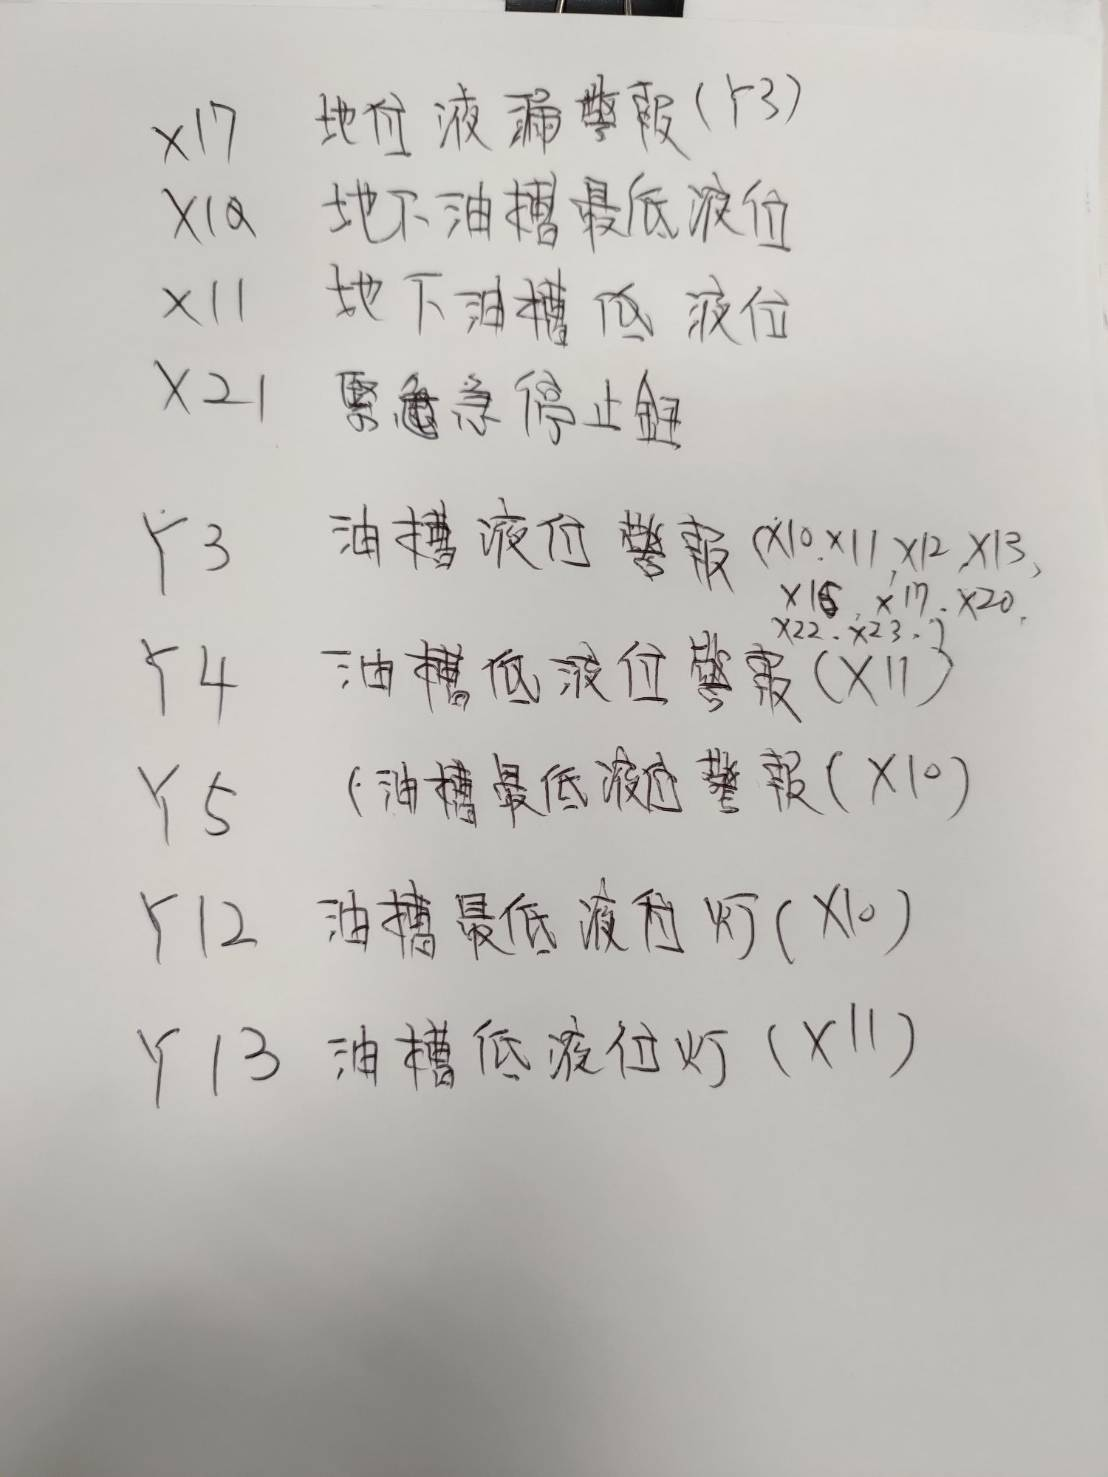 X17 地位液漏警報(Y3)
X10 地下油槽最低液位
X11 地下油槽低液位
X21 緊急停止鈕
Y3 油槽液位警報(X10.X11,X12,X13、
X16,X17.X20.
X22.X23.)
Y4 油槽低液位警報(X11)
Y5 (油槽最低液位警報(X10)
Y12 油槽最低液位灯(X10)
Y13 油槽低液位灯(X11)